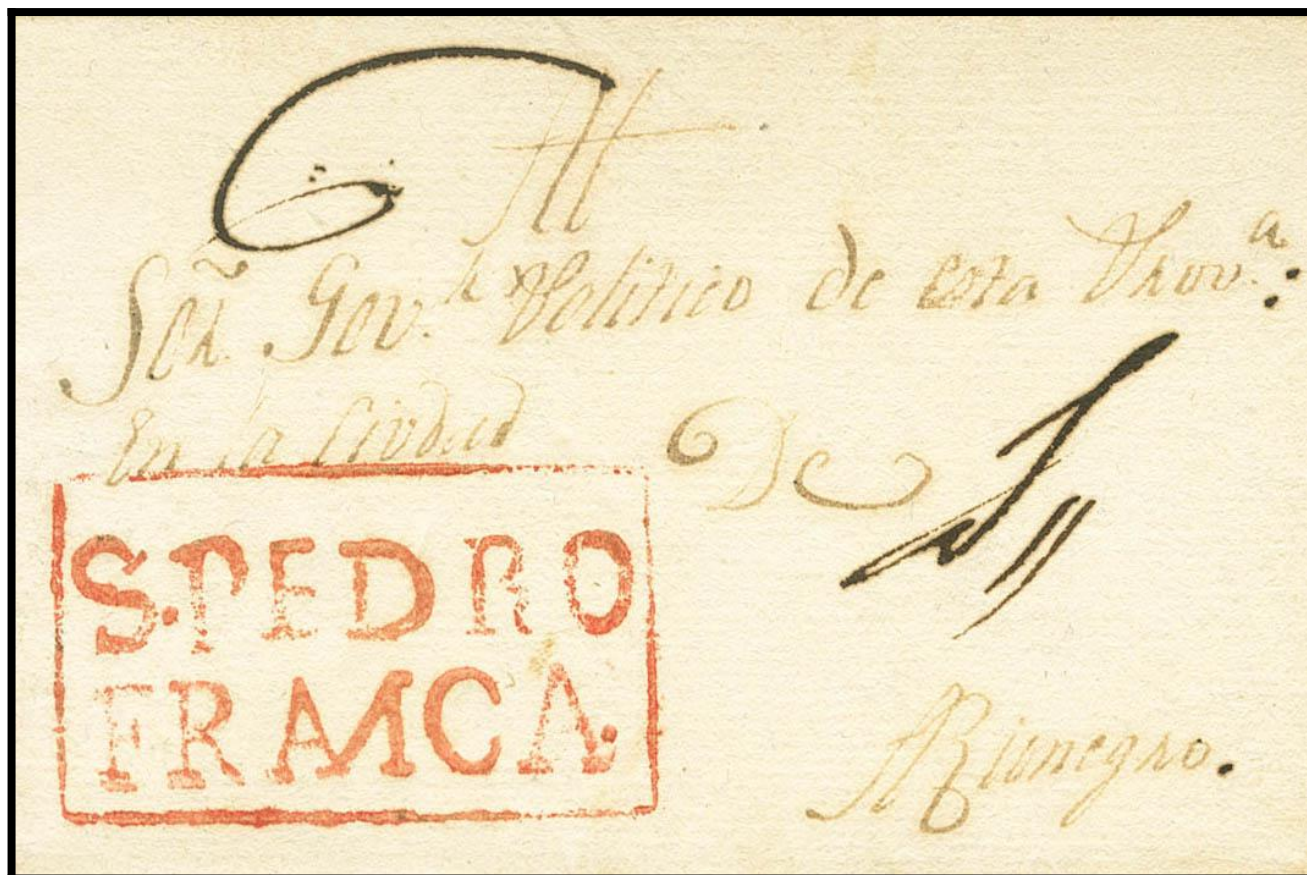 Sor. Gov.r Politico de esta Prov.a:
En la Ciudad De
S. PEDRO
FRANCA.
Rionegro.